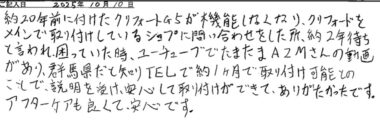 ご記入日 2025年10月10日
約20年前に付けたクリフォードG5が機能しなくなり、クリフォードを
メインで取り付けしているショップに問い合わせをした所、約2年待ち
と言われ困っていた時、ユーチューブでたまたまA2Mさんの動画
があり、群馬県だと知りTELしで約1ヶ月で取り付け可能との
ことで、説明を受け、安心して取り付けができて、ありがたかったです。
アフターケアも良くて、安心です。